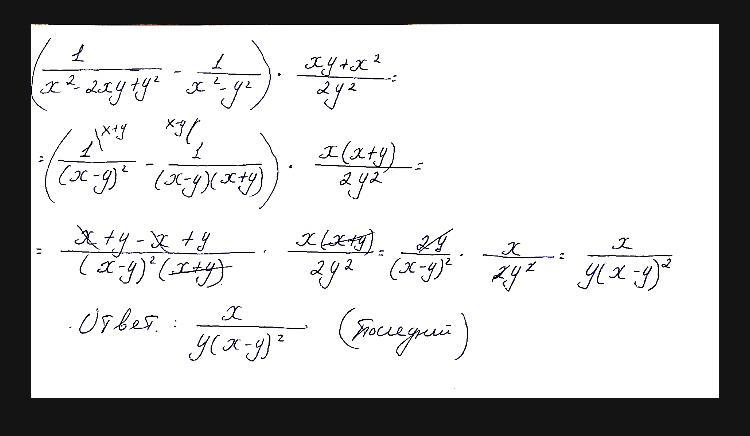 (1/(x²-2xy+y²) - 1/(x²-y²)) · (xy+x²)/(2y²) =
= (1\x+y/(x-y)² - x-y/1/((x-y)(x+y))) · x(x+y)/(2y²) =
= (x+y-x+y)/((x-y)²(x+y)) · x(x+y)/(2y²) = 2y/(x-y)² · x/(2y²) = x/(y(x-y)²)
Ответ: x/(y(x-y)²) (последний)